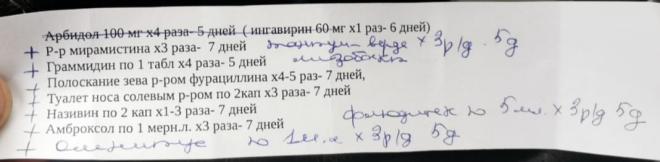 Арбидол 100 мг х4 раза- 5 дней ( ингавирин 60 мг х1 раз- 6 дней)
+ Р-р мирамистина х3 раза- 7 дней тантум верде х 3р/д. 5д
+ Граммидин по 1 табл х4 раза- 5 дней лизобакт
+ Полоскание зева р-ром фурациллина х4-5 раз- 7 дней,
+ Туалет носа солевым р-ром по 2кап х3 раза- 7 дней
+ Називин по 2 кап х1-3 раза- 7 дней
+ Амброксол по 1 мерн.л. х3 раза- 7 дней флюдитек по 5мл. х 3р/д 5д
+ по 1м.л х 3р/д 5д